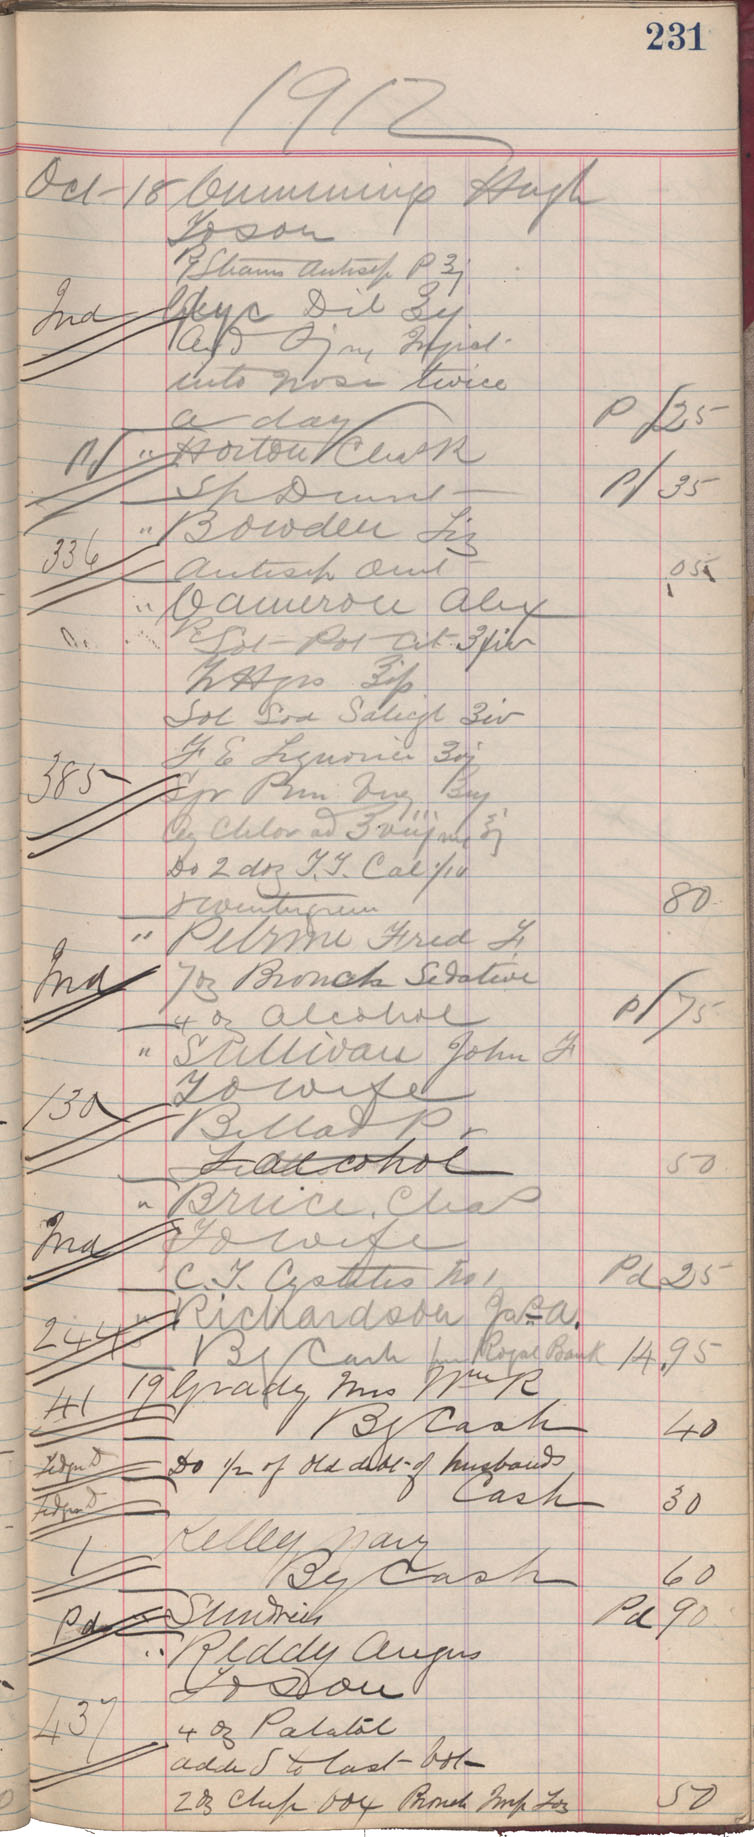 231
1912
Oct 18 Cumming Hugh
To son
Rx Stearns Antisep P ʒj
Ind Glyc Dil ʒij
Aq ad ℥j m Inject
into nose twice
a day P / 25
" Horton Chas R
Sp Drunt P / 35
336 " Bowden Liz
Antisep Oint 05
" Cameron Alex
Rx Sol Pot Cit ℥iv
ʒip
Sol Sod Salicyl ʒiv
385 F E Liquorice ʒvj
Spr
Aq Chlor ad ℥viij m
Do 2 doz T.T. Cal 1/10
& wintergreen 80
" Petrie Fred F
Ind 7 oz Bronch Sedative
4 oz Alcohol P / 75
" Sullivan John F
130 To wife
Bellad Pr
Alcohol 50
" Bruce, Chas
Ind To wife
C.T. Cystitis No 1 Pd 25
" Richardson Jas A.
244 By Cash per Royal Bank 14.95
41 19 Grady Mrs Wm R
By Cash 40
Ledger D Do 1/2 of old debt of husbands
Ledger D Cash 30
Kelley Mary
1 By Cash 60
Pd " Sundries Pd 90
" Reddy Angus
To Son
437 4 oz Palatol
added to last bot
2 oz Chip box Bronch Imp Loz 50